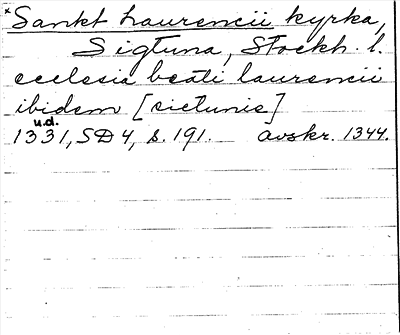 * Sankt Laurencii kyrka,
Sigtuna, Stockh. l.
ecclesia beati laurencii
ibidem [sictunis]
u.d.
1331, SD 4, s. 191. avskr. 1344.